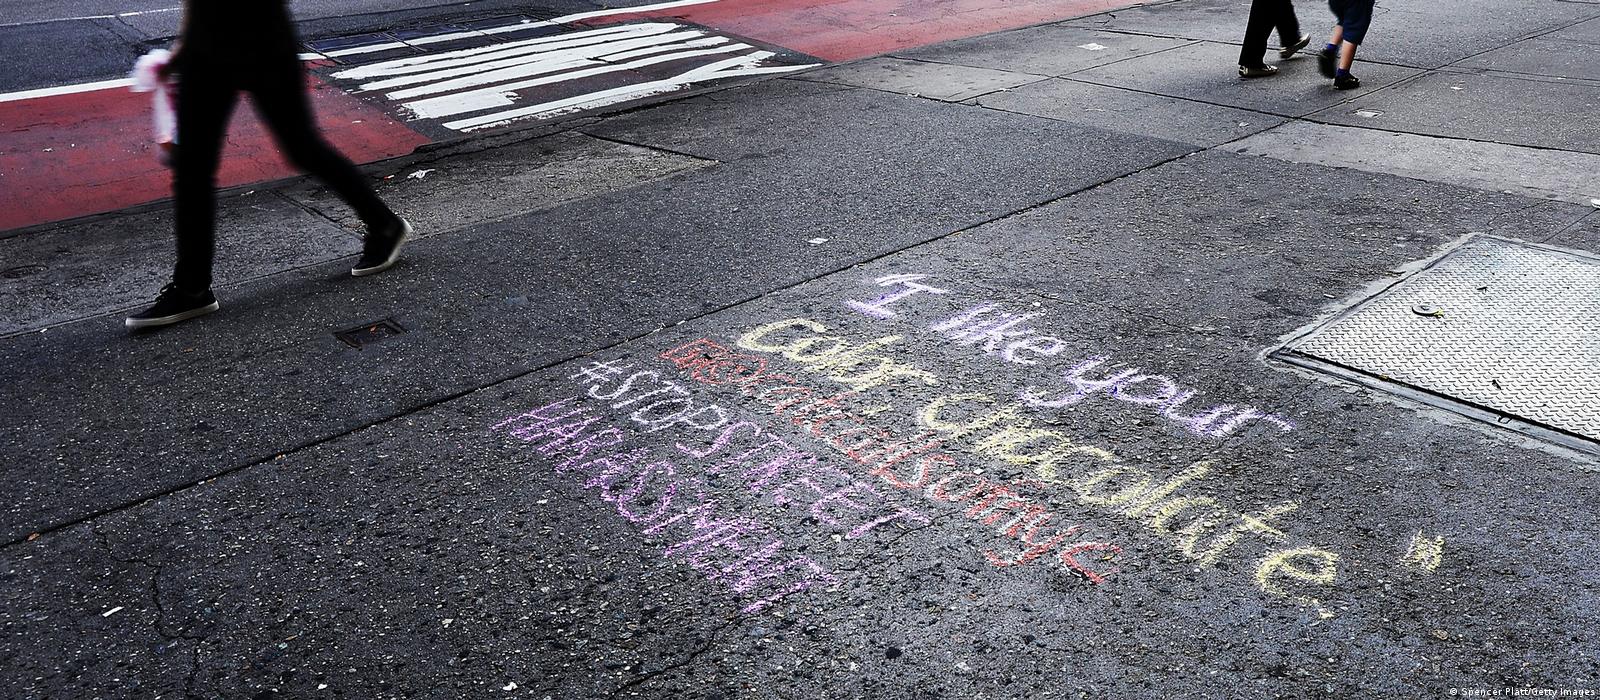 "I like your
color. Chocolate"
@catcallsofnyc
#STOPSTREET
HARASSMENT
© Spencer Platt/Getty Images